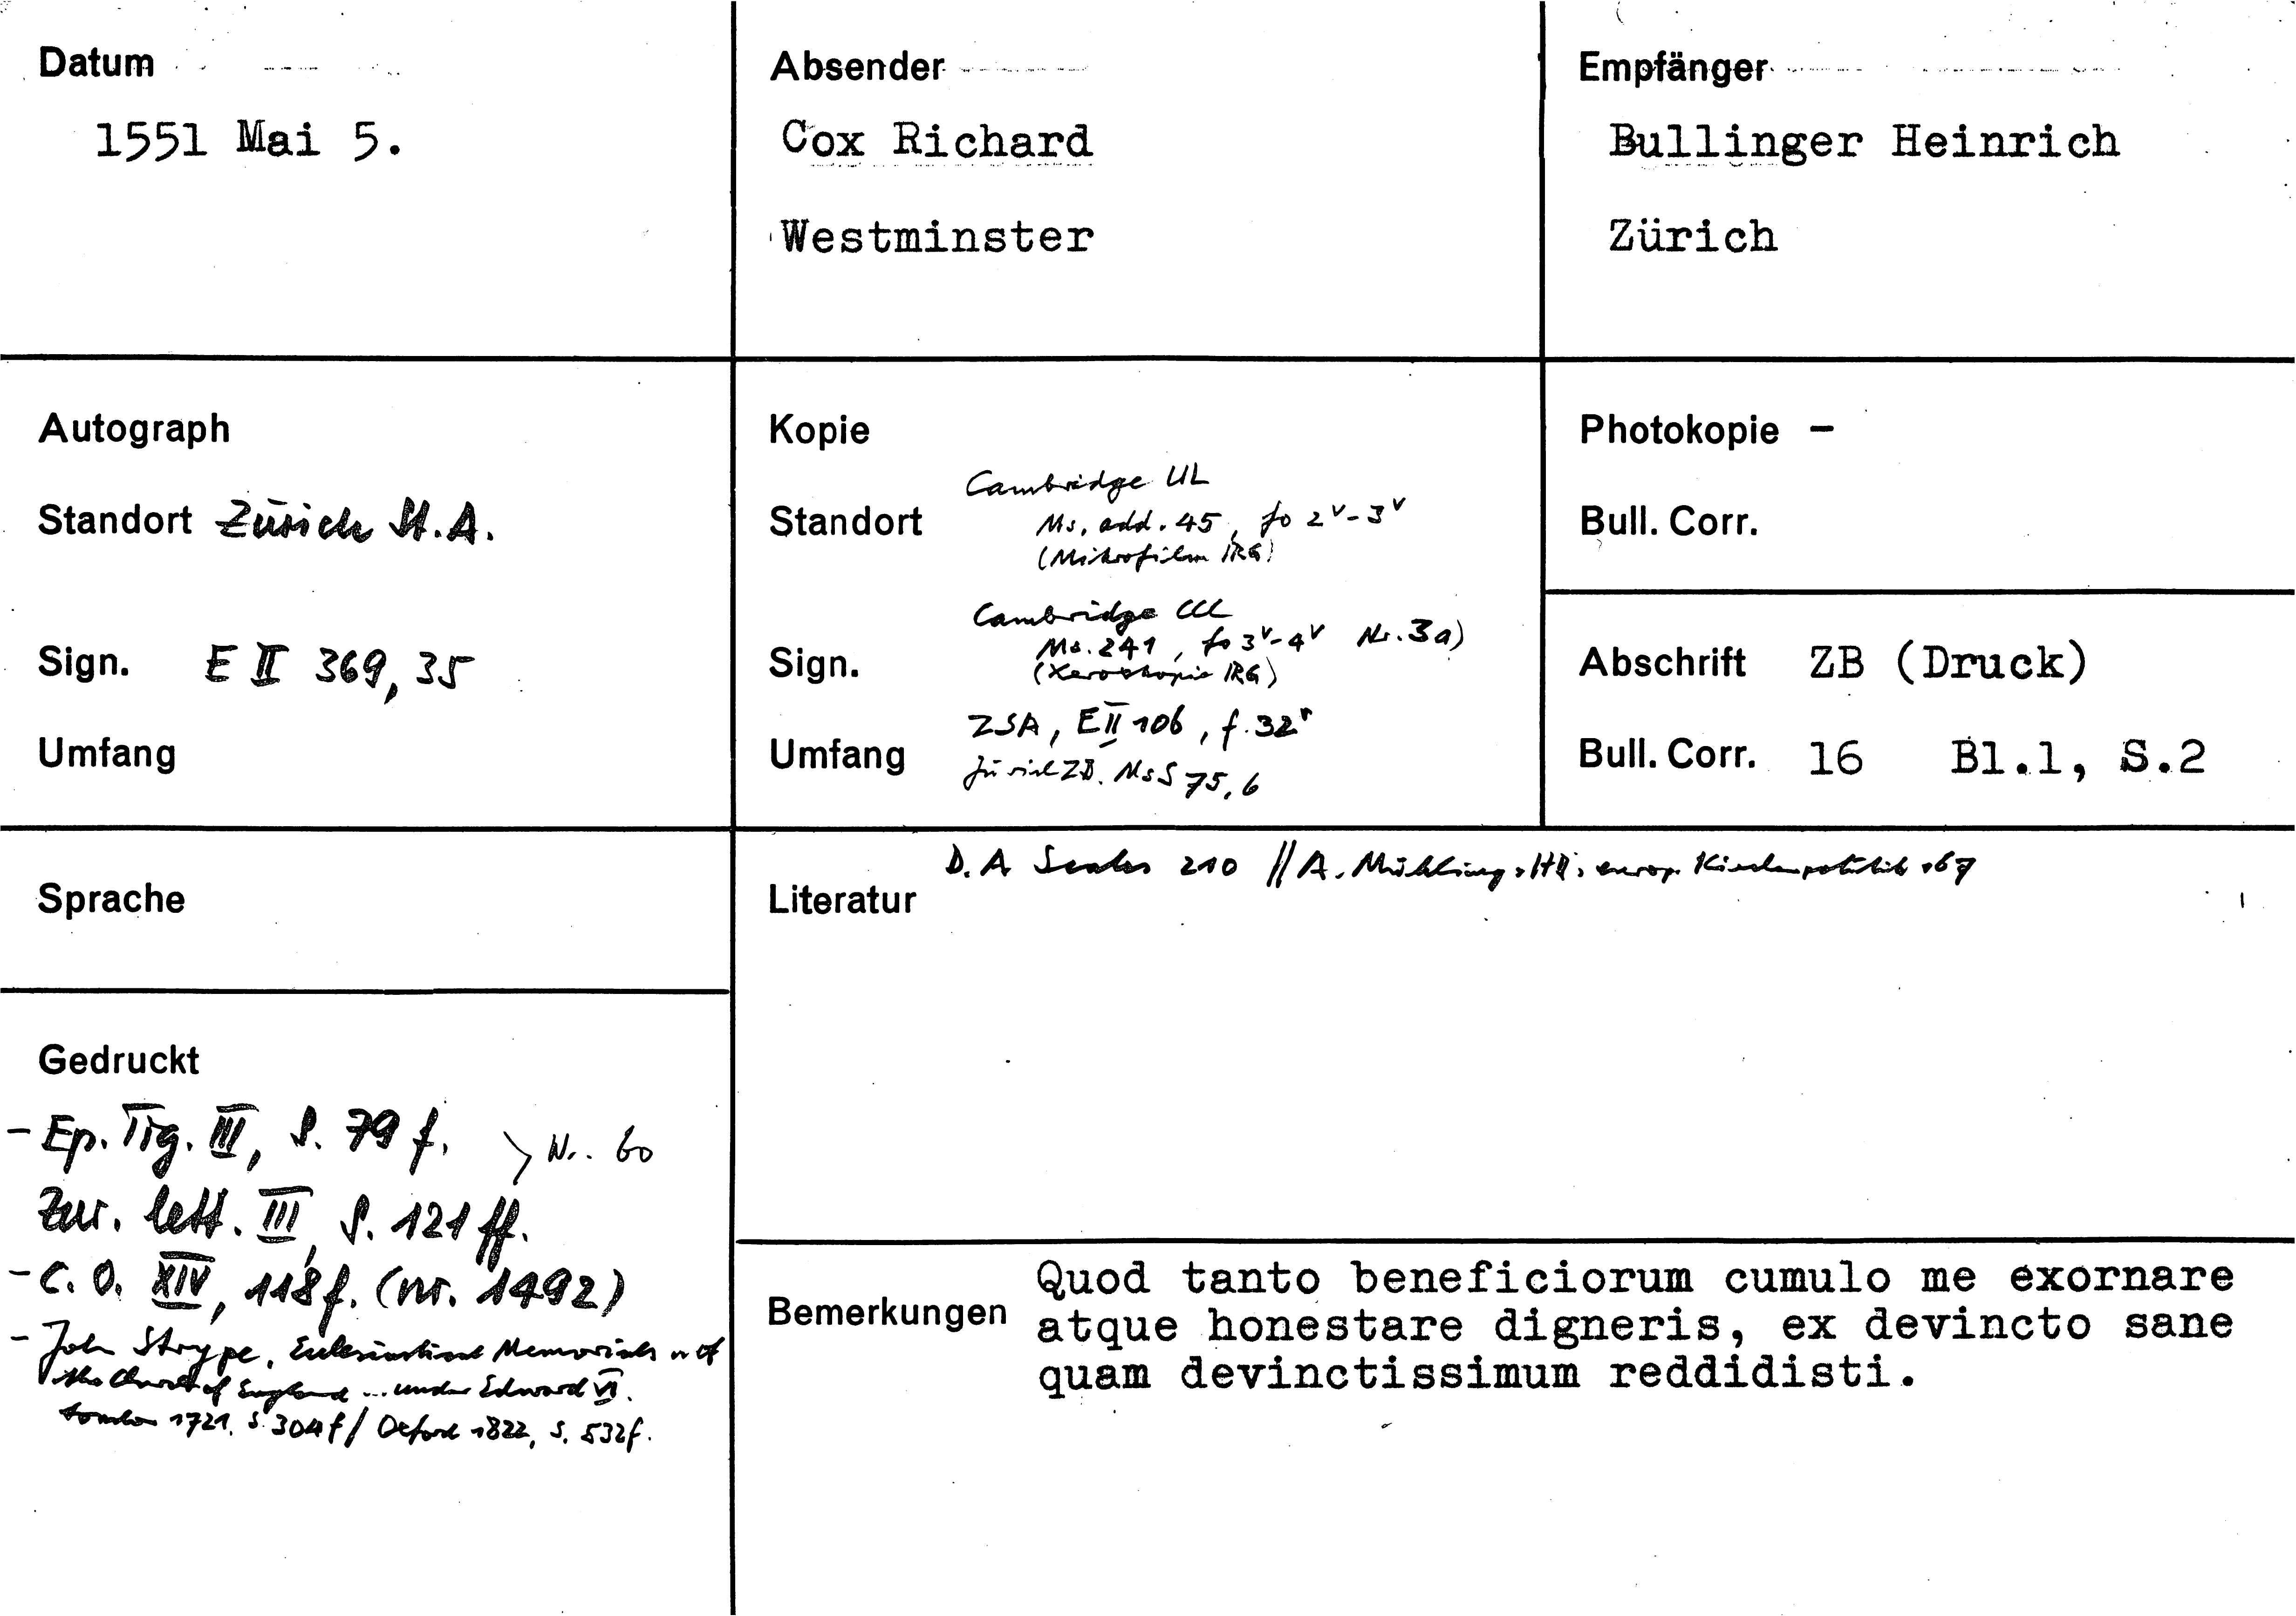 Datum
1551 Mai 5.
Absender
Cox Richard
Westminster
Empfänger
Bullinger Heinrich
Zürich
Autograph
Standort Zürich St.A.
Sign. E II 369, 35
Umfang
Kopie
Standort
Cambridge UL
Ms. add. 45, fo 2v-3v
(Mikrofilm IRG)
Sign.
Cambridge CCC
Ms. 241, fo 3v-4v Nr. 3a)
(Xerokopie IRG)
Umfang
ZSA, E II 106, f. 32r
Zürich ZB. Ms S 75, 6
Photokopie –
Bull. Corr.
Abschrift ZB (Druck)
Bull. Corr. 16 Bl.1, S.2
Sprache
Literatur
D. A Scales 210 // A. Mühling, HB's europ. Kirchenpolitik 167
Gedruckt
- Ep. Tig. III, S. 79 f. > Nr. 60
Zur. lett. III, S. 121 ff.
- C. O. XIV, 118 f. (nr. 1492)
- John Strype, Ecclesiastical Memorials of
the Church of England ... under Edward VI.
London 1721, S. 304 f / Oxford 1822, S. 532 f.
Bemerkungen
Quod tanto beneficiorum cumulo me exornare
atque honestare digneris, ex devincto sane
quam devinctissimum reddidisti.